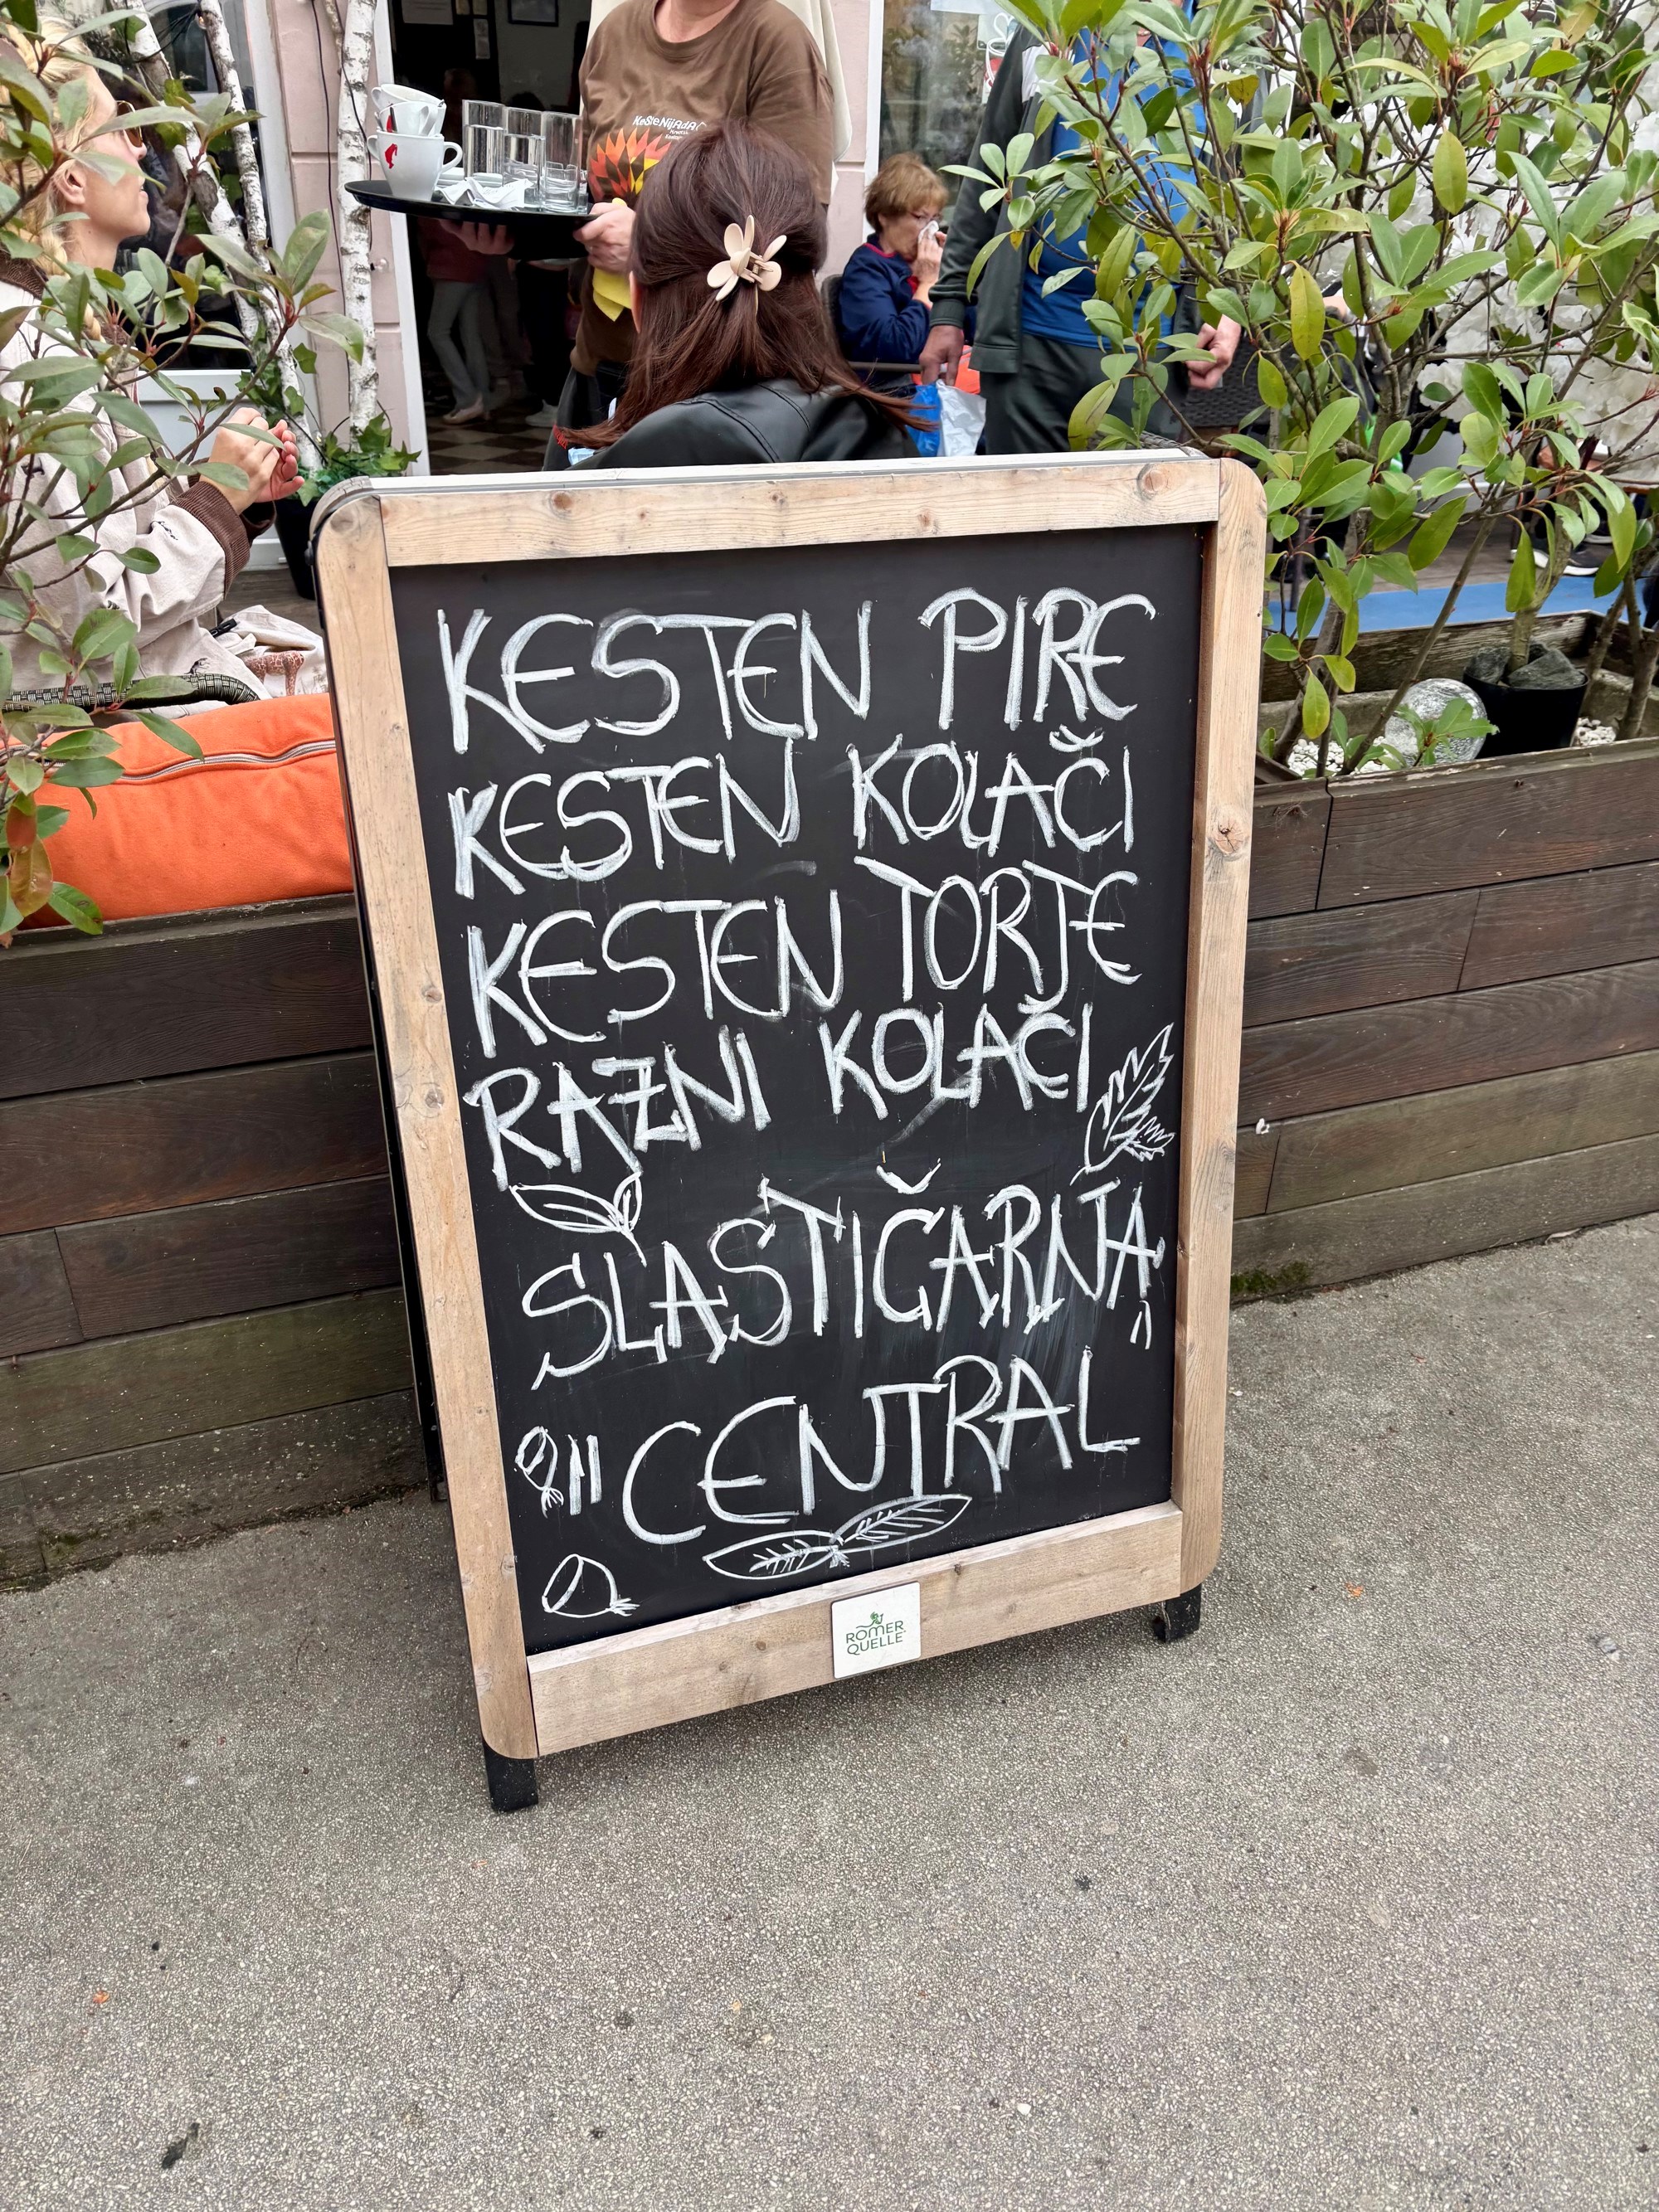 KesteNijAdA
KESTEN PIRE
KESTEN KOLAČI
KESTEN TORTE
RAZNI KOLAČI
SLASTIČARNA
"CENTRAL"
RÖMER
QUELLE